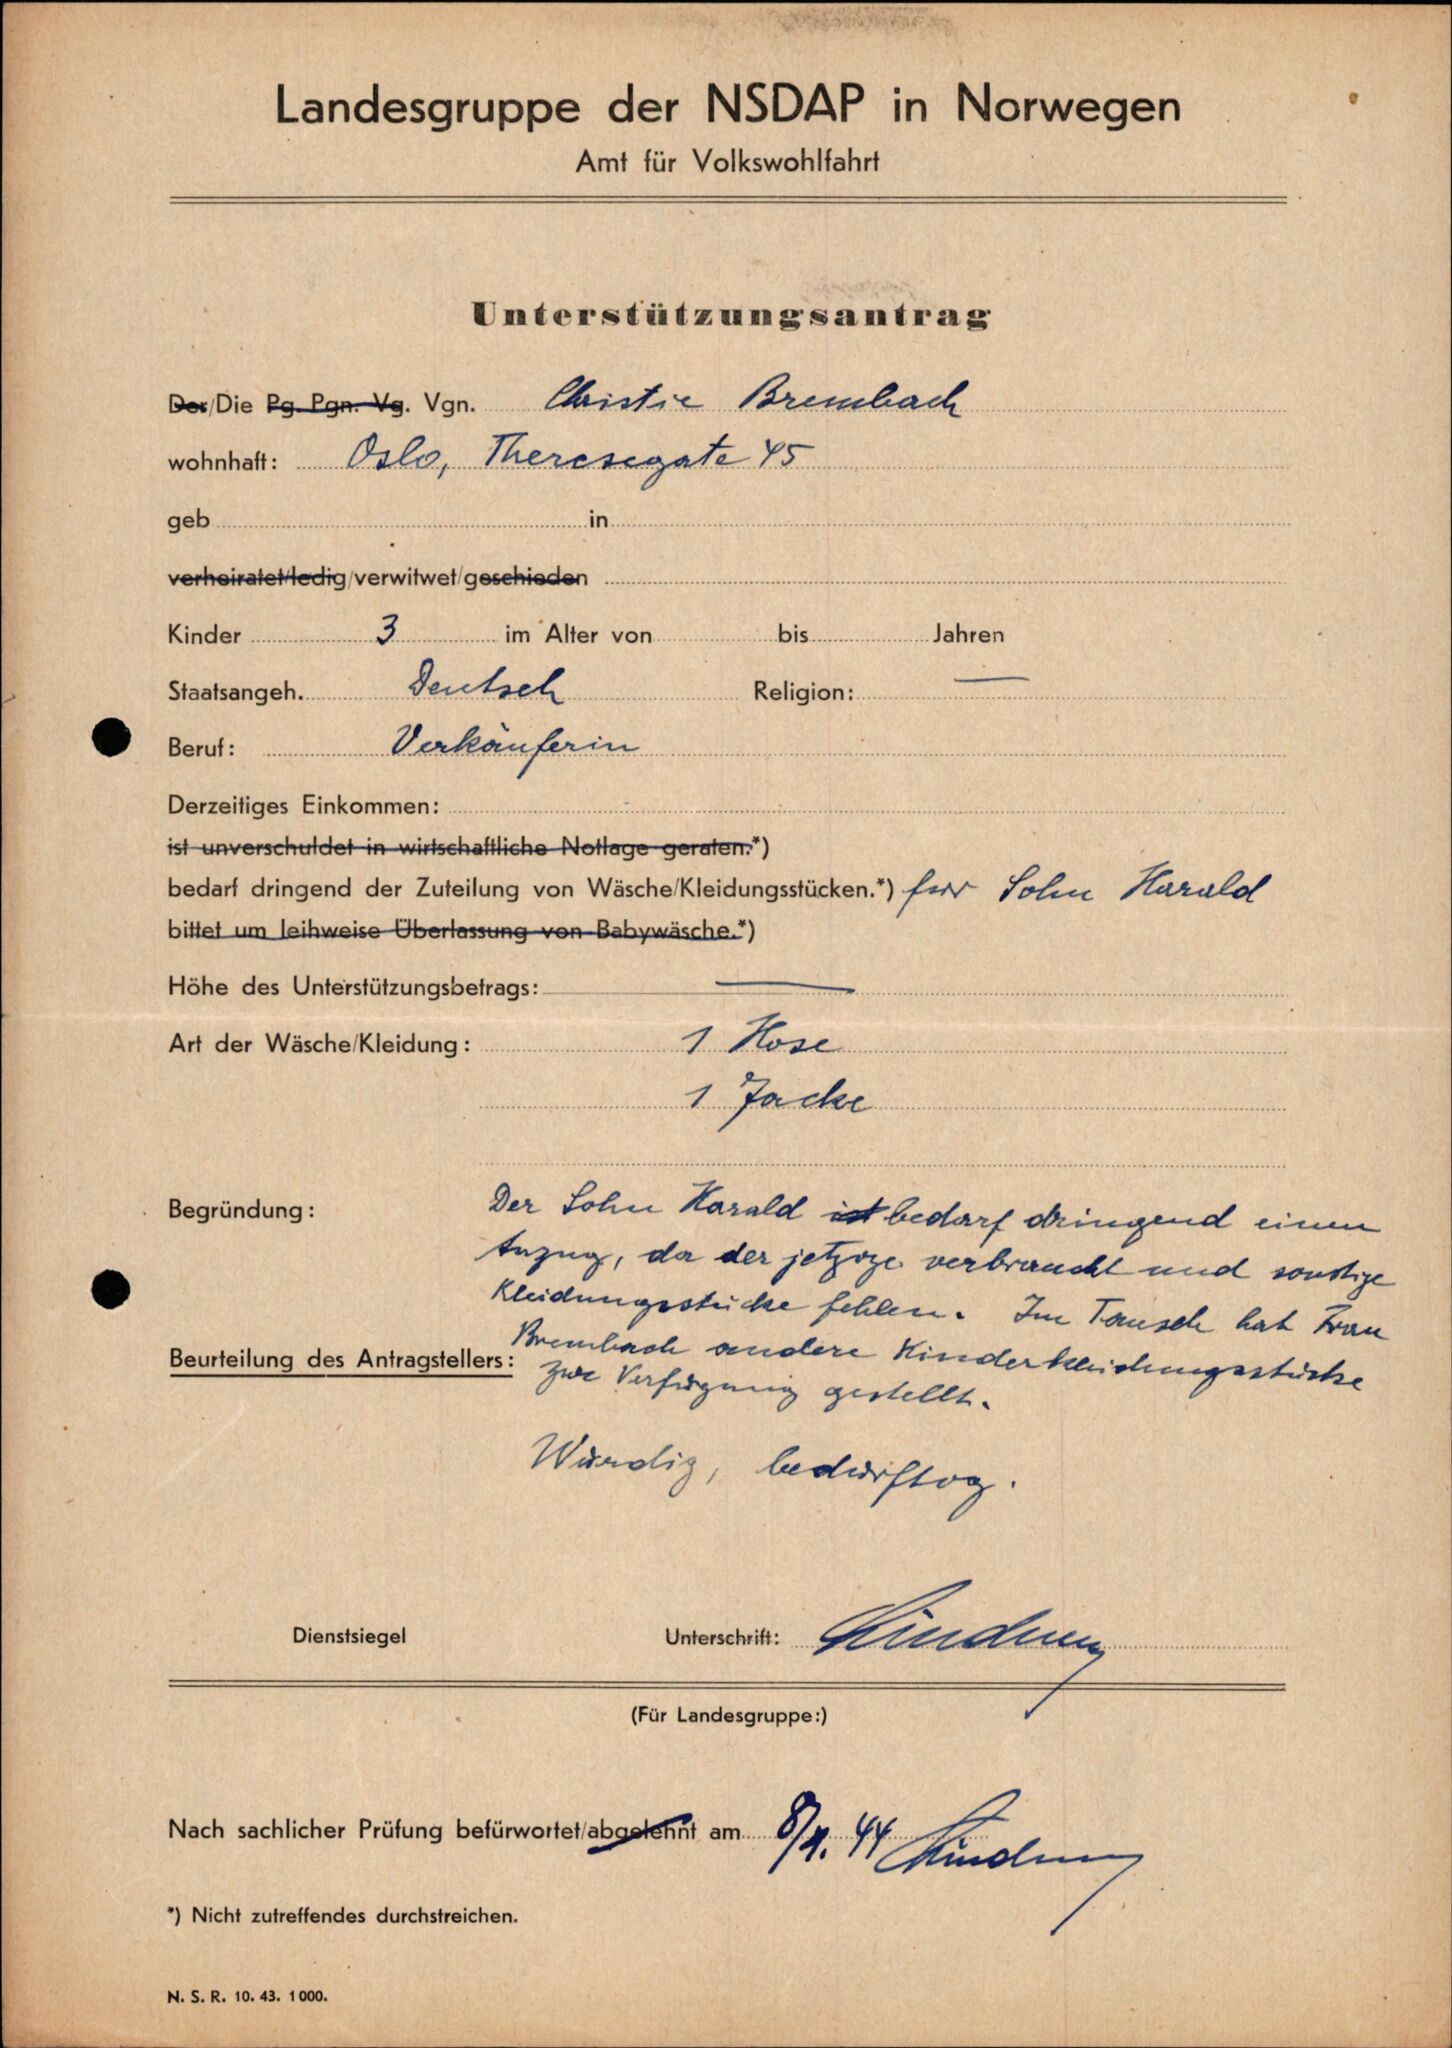 Landesgruppe der NSDAP in Norwegen
Amt für Volkswohlfahrt
Unterstützungsantrag
Der/Die Pg. Pgn. Vg. Vgn. Christie Brembach
wohnhaft: Oslo, Theresegate 45
geb in
verheiratet/ledig/verwitwet/geschieden
Kinder 3 im Alter von bis Jahren
Staatsangeh. Deutsch Religion: —
Beruf: Verkäuferin
Derzeitiges Einkommen:
ist unverschuldet in wirtschaftliche Notlage geraten.*)
bedarf dringend der Zuteilung von Wäsche/Kleidungsstücken.*) für Sohn Harald
bittet um leihweise Überlassung von Babywäsche.*)
Höhe des Unterstützungsbetrags: —
Art der Wäsche/Kleidung: 1 Hose
1 Jacke
Begründung: Der Sohn Harald ist bedarf dringend einen
Anzug, da der jetzige verbraucht und sonstige
Kleidungsstücke fehlen. Im Tausch hat Frau
Brembach andere Kinderkleidungsstücke
Beurteilung des Antragstellers: zur Verfügung gestellt.
Würdig, bedürftig.
Dienstsiegel Unterschrift:
(Für Landesgruppe:)
Nach sachlicher Prüfung befürwortet/abgelehnt am 8/4. 44
*) Nicht zutreffendes durchstreichen.
N. S. R. 10. 43. 1000.